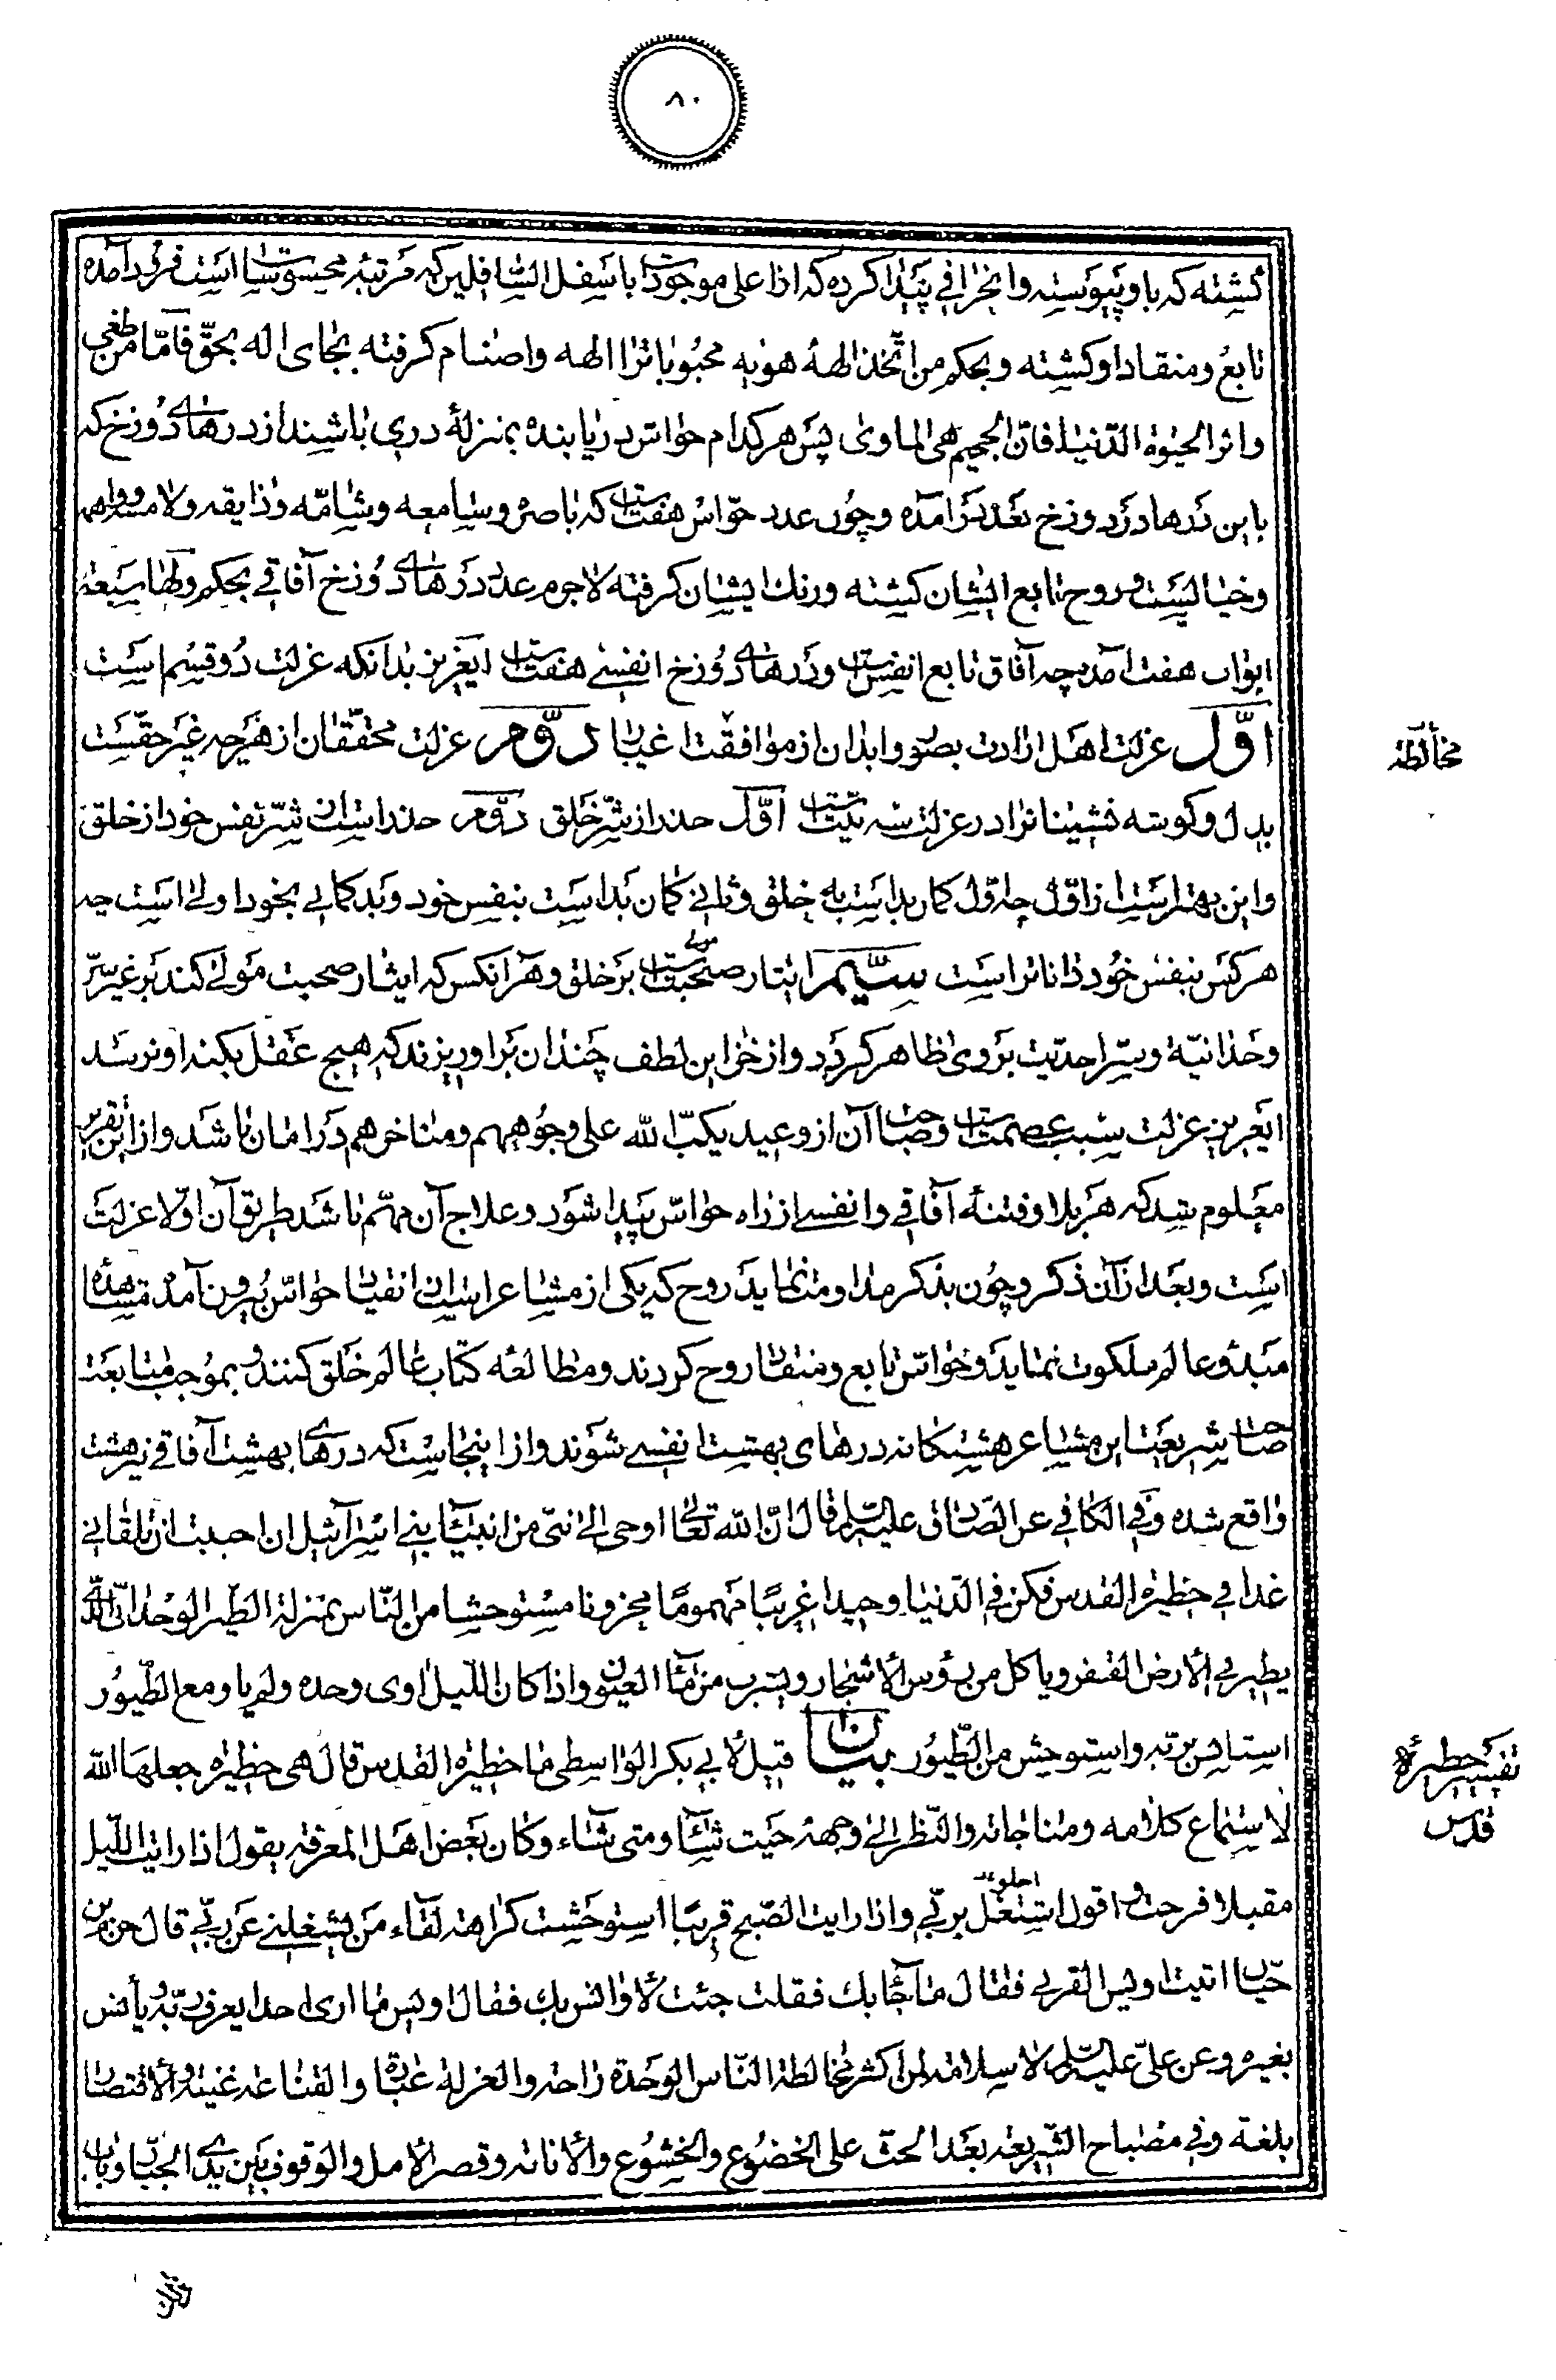 ۸۰
گشته که باو پیوسته وانحرافی پیدا کرده که اذا علی موجودات باسفل السافلین که مرتبۀ محسوسات است فرود آمده
تابع ومنقاد او کشته وبحکم من اتّخذ الههُ هویه محبوبا ترا الهه واصنام کرفته بجای اله بحقّ فامّا من طغی
واثر الحیوة الدّنیا فانّ الجحیم هی الماوی پس هر کدام حواس دریابنده بمنزلۀ دری باشند از درهای دوزخ که
باین درها در دوزخ بعد درآمده وچون عدد حواس هفت است که باصره وسامعه وشامّه وذایقه ولامسه وواهمه
وخیالیست وروح تابع ایشان کشته ورنک ایشان کرفته لاجرم عدد درهای دوزخ آفاقی بحکم ولها سبعة
ابواب هفت آمد چه آفاق تابع انفس است ودرهای دوزخ انفسی هفت است ایعزیز بدانکه عزلت دو قسم است
اوّل عزلت اهل ارادت بصور وابدان از موافقت اغیار دوّم عزلت محقّقان از هرچه غیر حقّست
بدل وکوشه نشینانرا در عزلت سه نیّت است اوّل حذر از شرّ خلق دوّم حذر است از شرّ نفس خود از خلق
واین بهتر است از اوّل چه اوّل کمان بد است به خلق وثانی کمان بد است بنفس خود وبدکمانی بخود اولی است چه
هرکس بنفس خود داناتر است سیّم ایثار صحبت مولی است بر خلق وهر آنکس که ایثار صحبت مولی کند بر غیر سرّ
وحدانیة وسرّ احدیّت بر وی ظاهر کردد واز خزاین لطف چندان بر او ریزند که هیچ عقل بکنه او نرسد
ایعزیز عزلت سبب عصمت است وصاحب آن از وعید یکبّ الله علی وجوههم ومناخرهم در امان باشد واز این تقریر
معلوم شد که هر بلا وفتنۀ آفاقی وانفسی از راه حواسّ پیدا شود وعلاج آن مهمّ باشد طریق آن اوّلا عزلت
است وبعد از آن ذکر وچون بذکر مداومت نماید روح که یکی از مشاعر است از انقیاد حواسّ بیرون آمده مشاهده
مبدء وعالم ملکوت نماید وحواسّ تابع ومنقاد روح کردند ومطالعه کتاب عالم خلق کنند وبموجب متابعت
صاحب شریعت این مشاعر هشتکانه درهای بهشت انفسی شوند واز اینجاست که درهای بهشت آفاقی نیز هشت
واقع شده وفی الکافی عن الصّادق علیه السّلم قال انّ الله تعالی اوحی الی نبیّ من انبیآء بنی اسرآئیل ان احببت ان تلقانی
غدا فی حظیرة القدس فکن فی الدّنیا وحیدا غریبا مهموما محزونا مستوحشا من النّاس بمنزلة الطّیر الوحدانیّ الّذی
یطیر فی الارض القفر ویاکل من رؤس الاشجار ویشرب من مآء العیون واذا کان اللّیل اوی وحده ولم یاو مع الطّیور
استانس بربّه واستوحش من الطّیور بیان قیل لابی بکر الواسطی ما حظیرة القدس قال هی حظیرة جعلها الله
لاستماع کلامه ومناجاته والنّظر الی وجهه حیث شآء ومتی شآء وکان بعض اهل المعرفة یقول اذا رایت اللّیل
مقبلا فرحت واقول اشتغل بربّی واذا رایت الصّبح قریبا استوحشت کراهة لقآء من یشغلنی عن ربّی قال حرم بن
حیّان اتیت اویس القرنی فقال ما جآء بک فقلت جئت لاوانس بک فقال اویس ما اری احدا یعرف ربّه ویأنس
بغیره وعن علیّ علیه السّلم لا سلامة لمن اکثر مخالطة النّاس الوحدة راحة والعزلة عبادة والقناعة غنیة والاقتصاد
بلغة وفی مصباح الشّریعة بعد الحثّ علی الخضوع والخشوع والانابة وقصر الامل والوقوف بین یدی الجبّار
مخالطه
تفسیر حظیرة
قدس